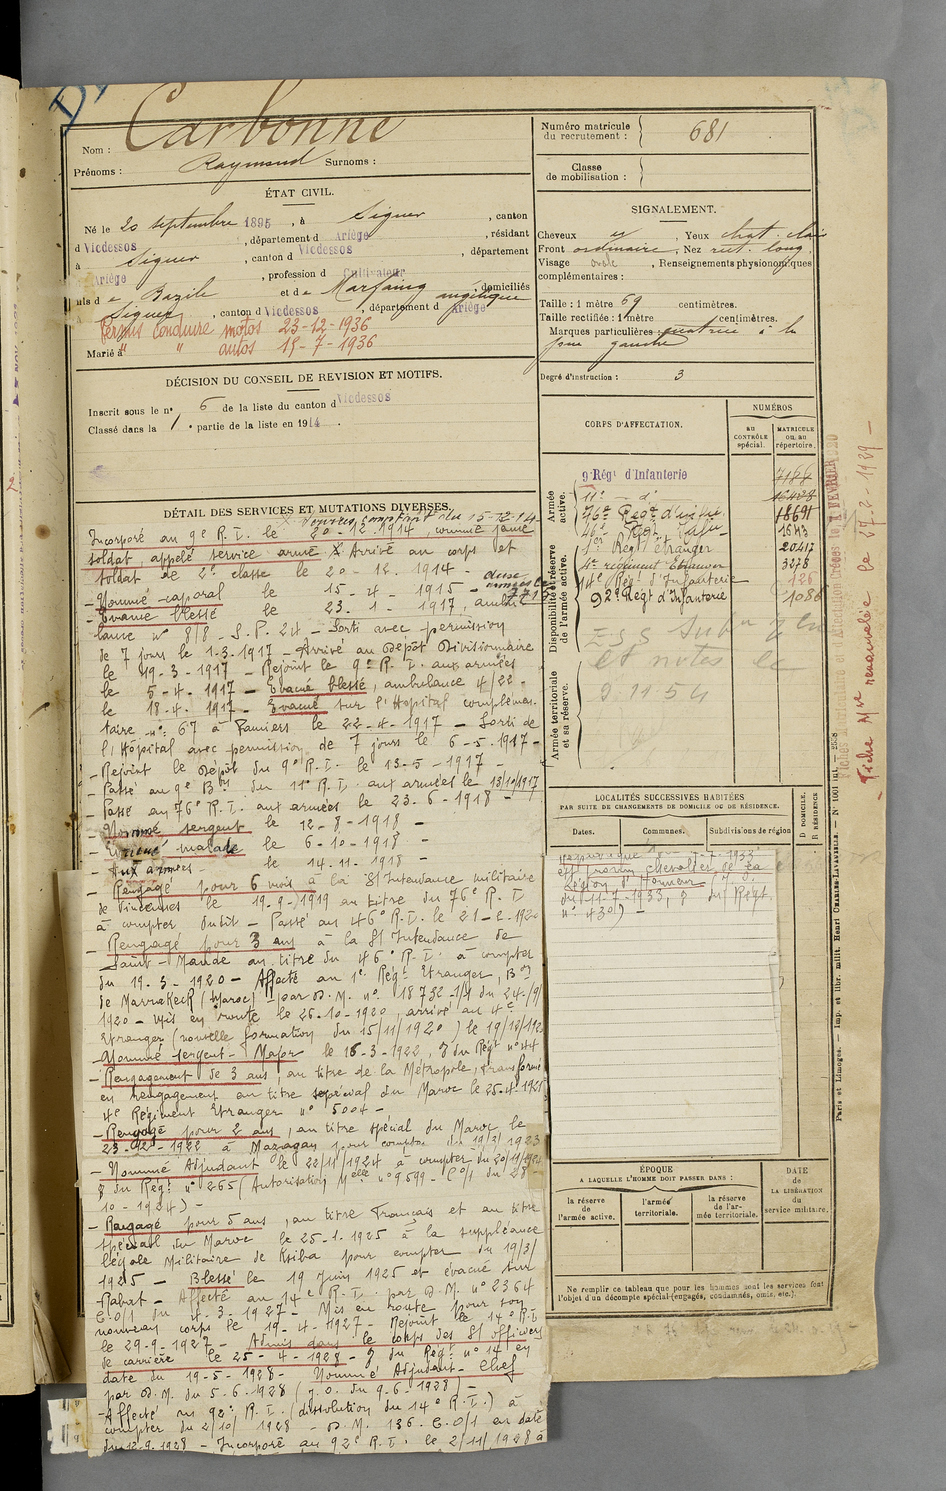 Carbonne
Nom :
Prénoms : Raymond Surnoms :
ÉTAT CIVIL.
Né le 20 septembre 1895, à Siguer, canton
d Vicdessos, département d Ariège, résidant
à Siguer, canton d Vicdessos, département
Ariège, profession d Cultivateur
fils de Bazile et de Marfaing angélique, domiciliés
Siguer, canton d Vicdessos, département d Ariège
Permis Conduire motos 23-12-1936
Marié à " " autos 15-7-1936
DÉCISION DU CONSEIL DE REVISION ET MOTIFS.
Inscrit sous le n° 6 de la liste du canton d Vicdessos
Classé dans la 1 e partie de la liste en 1914.
DÉTAIL DES SERVICES ET MUTATIONS DIVERSES.
du 15-12-14
Incorporé au 9e R.I. le 20-12-1914 comme jeune
soldat, appelé service armé X Arrivé au corps et
soldat de 2e classe le 20-12-1914 -
- Nommé caporal le 15-4-1915 -
- Evacué blessé le 23-1-1917, ambu
lance n° 8/8 - S.P. 24 - Sorti avec permission
de 7 jours le 1-3-1917 - Arrivé au Dépôt Divisionnaire
le 19-3-1917 - Rejoint le 9e R.I. aux armées
le 5-4-1917 - Evacué blessé, ambulance 4/22 -
le 18-4-1917 - Evacué sur l'Hopital complémen
taire n°: 67 à Pamiers le 22-4-1917 - Sorti de
l'Hôpital avec permission de 7 jours le 6-5-1917 -
- Rejoint le Dépôt du 9e R.I. le 13-5-1917 -
- Passé au 9e Bon du 11e R.I. aux armées le 13/10/1917
- Passé au 76e R.I. aux armées le 23-6-1918 -
- Nommé sergent le 12-8-1918 -
- Evacué malade le 6-10-1918 -
- Aux armées - le 14-11-1918 -
- Rengagé pour 6 mois à la S/Intendance militaire
de Vincennes le 19-9-1919 au titre du 76e R.I.
à compter dudit - Passé au 46e R.I. le 21-2-1920
- Rengagé pour 3 ans à la S/Intendance de
Saint-Mandé au titre du 46e R.I. à compter
du 19-3-1920 - Affecté au 1er Régt Etranger, Bon
de Marrakeck (Maroc) par D.M. n° 18732-1/1 du 24/9/
1920 - Mis en route le 26-10-1920, arrivé au 4e
Etranger (nouvelle formation du 15/11/1920) le
- Nommé sergent-Major le 16-3-1922, O du Régt n° 44
- Rengagement de 3 ans, au titre de la Métropole, transformé
en rengagement au titre spécial du Maroc le 25-4-1921
4e Régiment Etranger n° 5004 -
- Rengagé pour 2 ans, au titre spécial du Maroc le
23-12-1922 à Mazagan pour compter du 19/3/1923
- Nommé Adjudant le 22/11/1924 à compter du 20/11/1924
O du Régt n° 265 (Autorisation Melle n° 9599 - C 0/1 du 28-
10-1924) -
- Rengagé pour 5 ans, au titre Français et au titre
spécial du Maroc le 25-1-1925 à la suppléance
légale Militaire de Ksiba pour compter du 19/3/
1925 - Blessé le 19 Juin 1925 et évacué sur
Rabat - Affecté au 14e R.I. par D.M. n° 2364
C.0/1 du 4-3-1927 - Mis en route pour son
nouveau corps le 19-4-1927 - Rejoint le 14e R.I.
le 29-9-1927 - Admis dans le corps des S/officiers
de carrière le 25-4-1928 - O du Régt n° 14 en
date du 19-5-1928 - Nommé Adjudant-Chef
par D.M. du 5-6-1928 (J.O. du 9-6-1928) -
- Affecté au 92e R.I. (dissolution du 14e R.I.) à
compter du 2/10/1928 - D.M. 136 C.0/1 en date
du 12-9-1928 - Incorporé au 92e R.I. le 2/11/1928 à
Numéro matricule du recrutement : 681
Classe de mobilisation :
SIGNALEMENT.
Cheveux Yeux chat. clair
Front ordinaire, Nez rect. long
Visage ovale, Renseignements physionomiques
complémentaires :
Taille : 1 mètre 69 centimètres.
Taille rectifiée : 1 mètre centimètres.
Marques particulières : cicatrice à la
joue gauche
Degré d'instruction : 3
CORPS D'AFFECTATION.
NUMÉROS
AU CONTRÔLE spécial.
MATRICULE ou au répertoire.
Armée active.
Disponibilité et réserve de l'armée active.
Armée territoriale et sa réserve.
9e Régt d'Infanterie 7188
11e d° 16428
76e Régt d'infrie 18691
46e Régt 1643
1er Regt étranger 20417
4e régiment Etranger 3278
14e Régt d'Infanterie 126
92e Régt d'Infanterie 1086
et notes le
9.11.54
LOCALITÉS SUCCESSIVES HABITÉES
PAR SUITE DE CHANGEMENTS DE DOMICILE OU DE RÉSIDENCE.
Dates. Communes. Subdivisions de région
D DOMICILE.
R RÉSIDENCE
est promu chevalier de la
Légion d'honneur
du 11-7-1933, O du Régt.
n° 430) -
ÉPOQUE
A LAQUELLE L'HOMME DOIT PASSER DANS :
la réserve de l'armée active.
l'armée territoriale.
la réserve de l'armée territoriale.
DATE de LA LIBÉRATION du service militaire.
Ne remplir ce tableau que pour les hommes dont les services font
l'objet d'un décompte spécial (engagés, condamnés, omis, etc.).
Fiche Mre renouvelée le 27-2-1929 -
Paris et Limoges. — Imp. et libr. milit. Henri CHARLES-LAVAUZELLE.